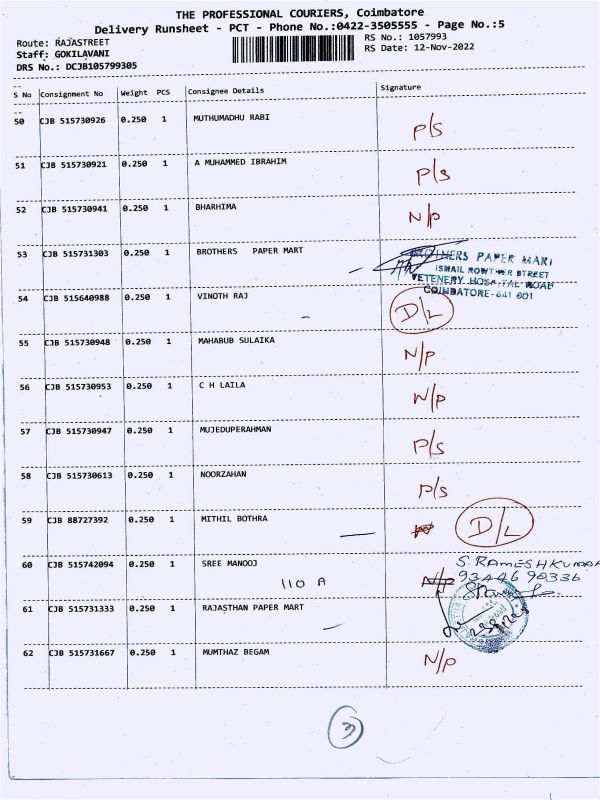 THE PROFESSIONAL COURIERS, Coimbatore
Delivery Runsheet - PCT - Phone No.:0422-3505555 - Page No.:5
Route: RAJASTREET
RS No.: 1057993
Staff: GOKILAVANI
RS Date: 12-Nov-2022
DRS No.: DCJB105799305
S No Consignment No Weight PCS Consignee Details Signature
50 CJB 515730926 0.250 1 MUTHUMADHU RABI P/S
51 CJB 515730921 0.250 1 A MUHAMMED IBRAHIM P/S
52 CJB 515730941 0.250 1 BHARHIMA N/P
53 CJB 515731303 0.250 1 BROTHERS PAPER MART
BROTHERS PAPER MART
ISMAIL ROWTHER STREET
VETENERY HOSPITAL ROAD
COIMBATORE-641 001
54 CJB 515640988 0.250 1 VINOTH RAJ D/L
55 CJB 515730948 0.250 1 MAHABUB SULAIKA N/P
56 CJB 515730953 0.250 1 C H LAILA N/P
57 CJB 515730947 0.250 1 MUJEDUPERAHMAN P/S
58 CJB 515730613 0.250 1 NOORZAHAN P/S
59 CJB 88727392 0.250 1 MITHIL BOTHRA D/L
60 CJB 515742094 0.250 1 SREE MANOOJ S. RAMESHKUMAR
110 A N/P 93446 90336
61 CJB 515731333 0.250 1 RAJASTHAN PAPER MART
62 CJB 515731667 0.250 1 MUMTHAZ BEGAM N/P